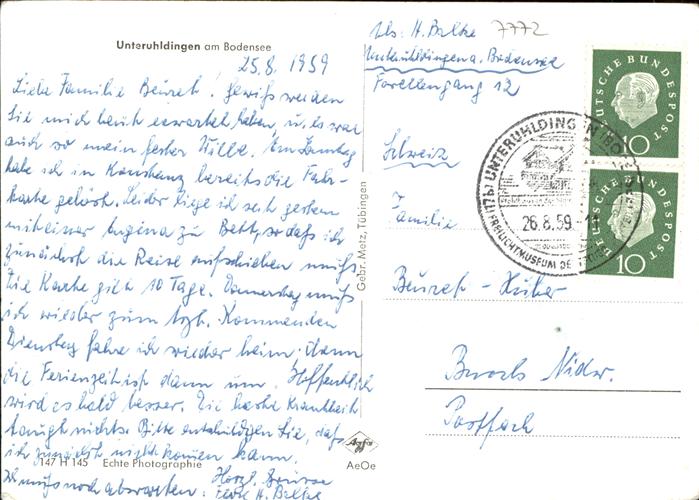 Unteruhldingen am Bodensee
25.8. 1959
Liebe Familie Beuret! Gewiß werden
Sie mich heute erwartet haben, u. es war
auch so mein fester Wille. Am Samstag
habe ich in Konstanz bereits die Fahr-
karte gelöst. Leider liege ich seit gestern
mit einer Angina zu Bett, so daß ich
zunächst die Reise aufschieben muß.
Die Karte gilt 10 Tage. Donnerstag muß
ich wieder zum Arzt. Kommenden
Dienstag fahre ich wieder heim, denn
die Ferienzeit ist dann um. Hoffentlich
wird es bald besser. Die Krankheit
taugt nichts. Bitte entschuldigen Sie, daß
ich zunächst nicht kommen kann.
muß noch abwarten. Herzl. Grüsse
H. Balke
147 H 145 Echte Photographie
Gebr. Metz, Tübingen
Agfa
AeOe
Abs. H. Balke 7772
Unteruhldingen a. Bodensee
Forellengang 12
Schweiz
Familie
Beuret-
Postfach
DEUTSCHE BUNDESPOST
10
DEUTSCHE BUNDESPOST
10
(17b) UNTERUHLDINGEN (BODENSEE)
26.8.59
FREILICHTMUSEUM DE